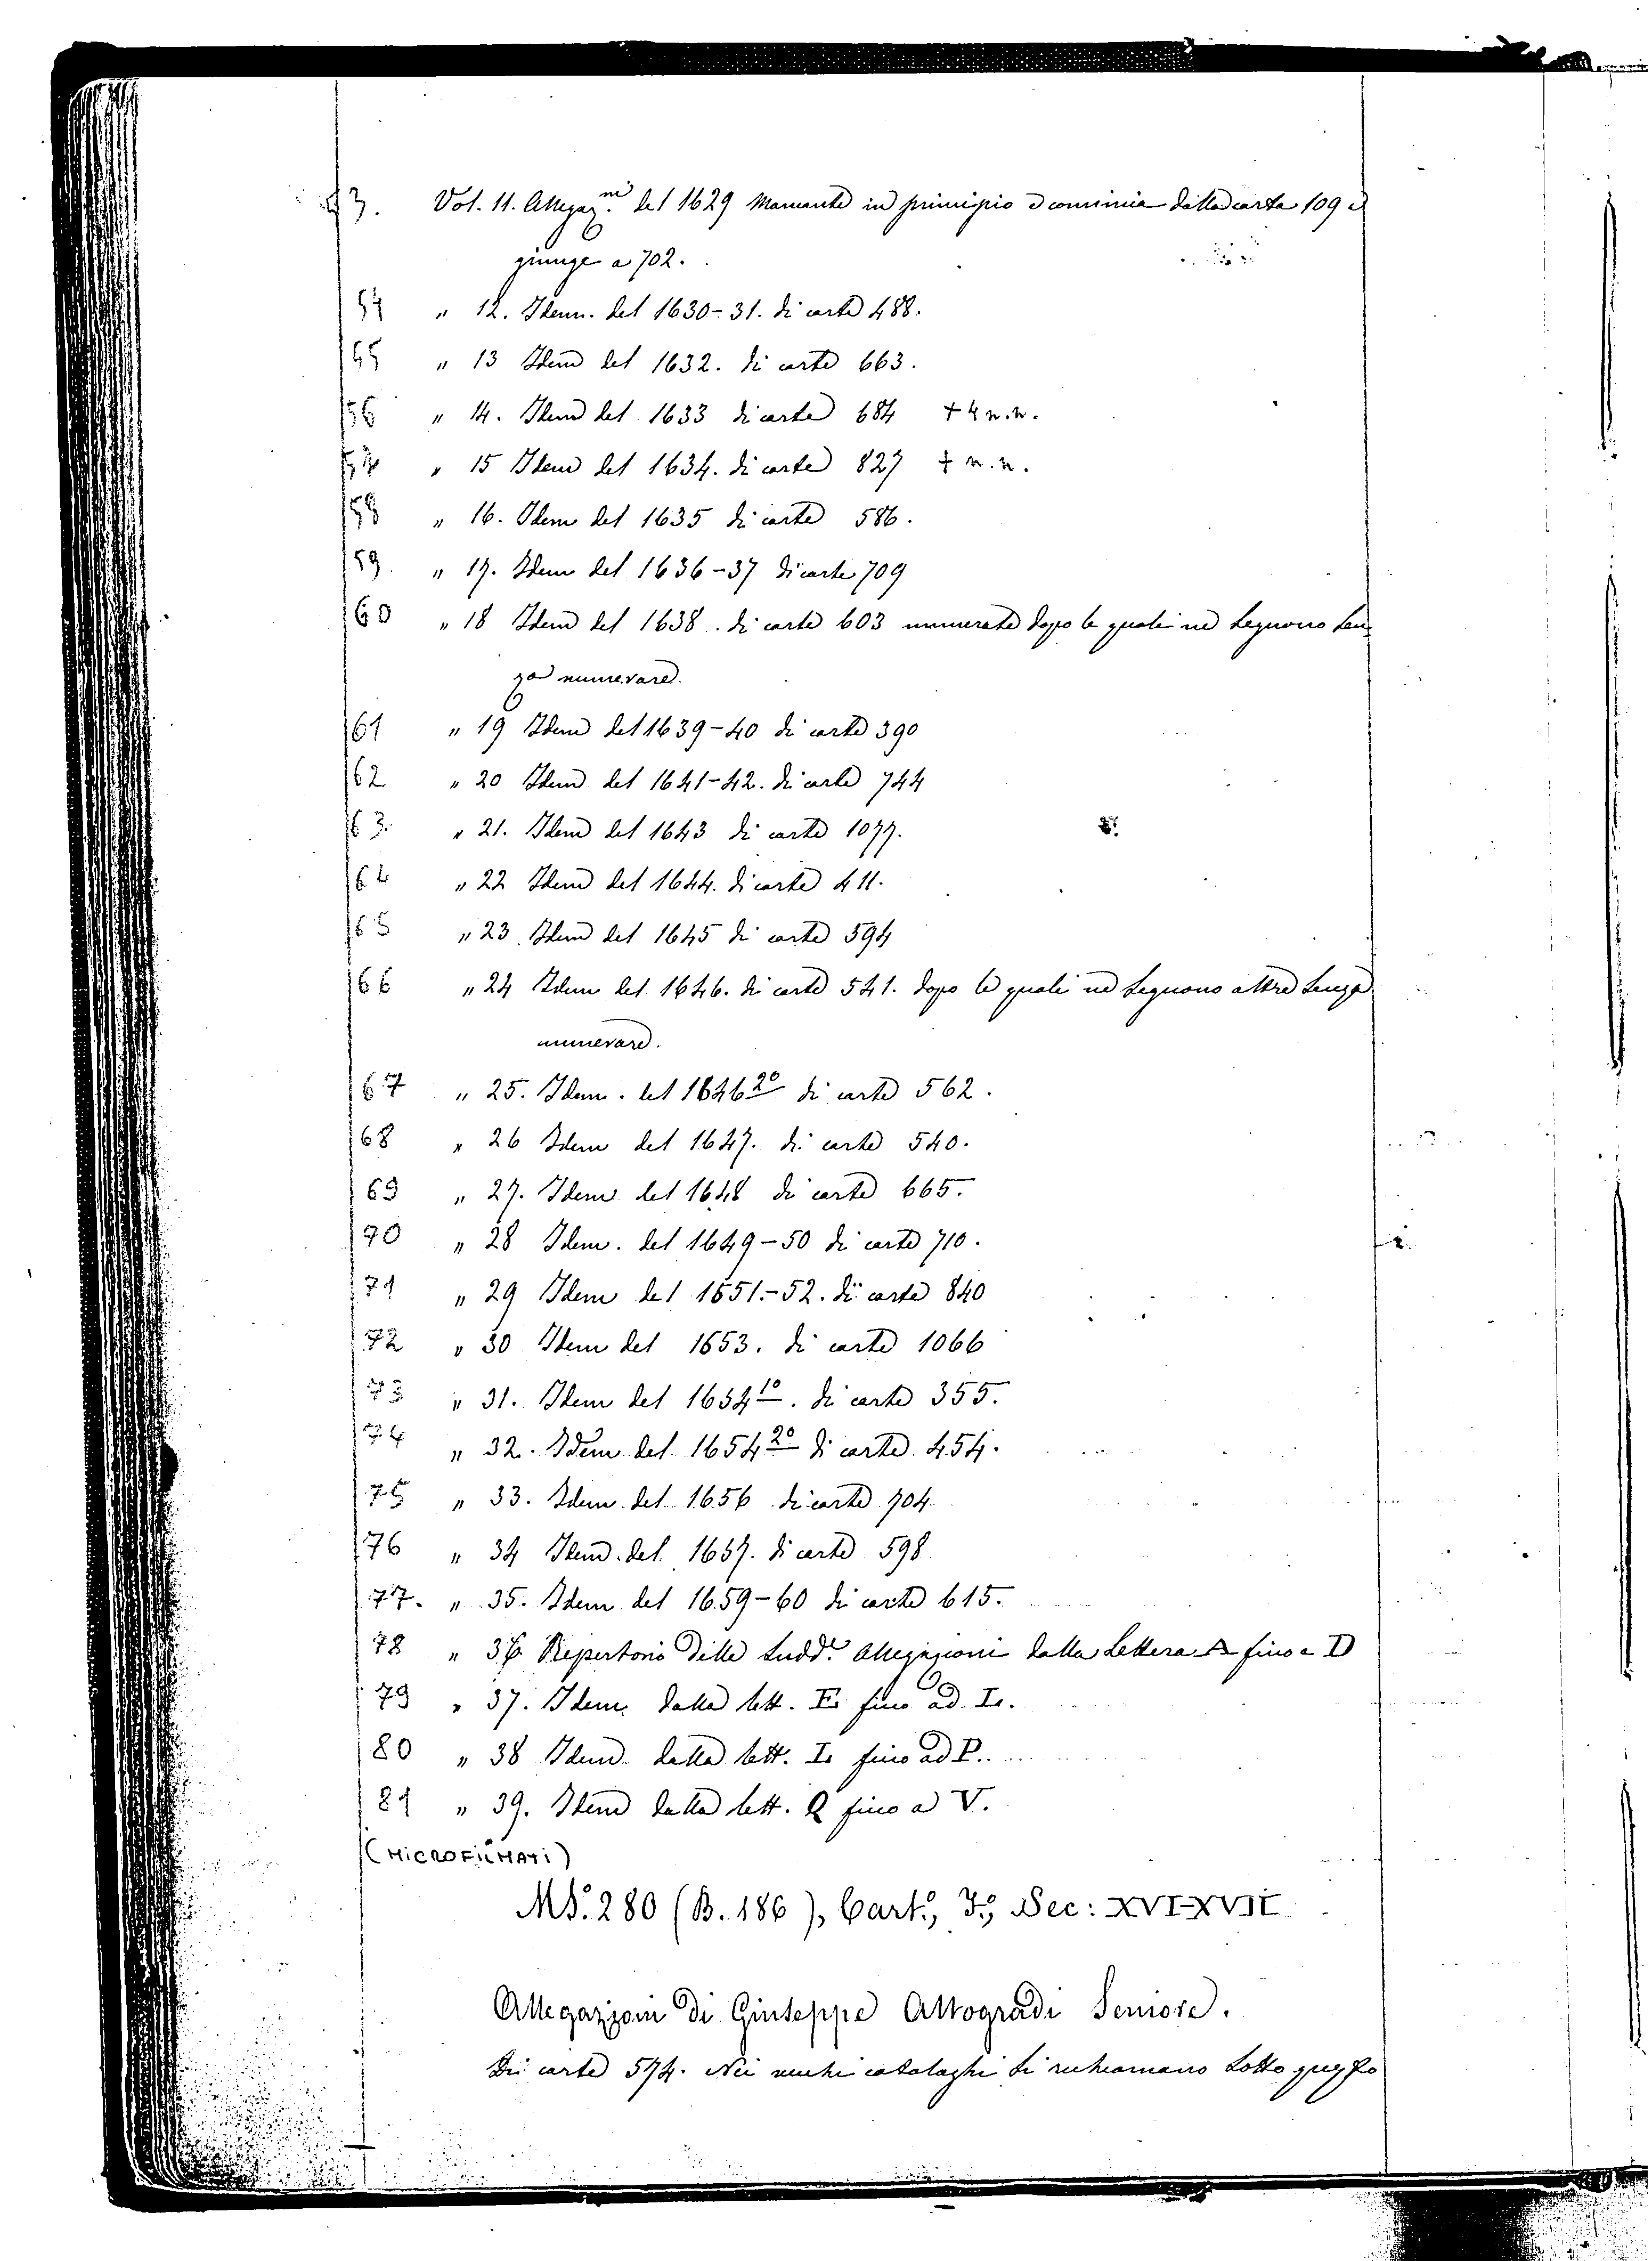 53. Vol. 11. Allegaz.ni del 1629 Mancante in principio e comincia dalla carta 109 e
giunge a 702.
54 " 12. Idem. del 1630-31. di carte 488.
55 " 13 Idem del 1632. di carte 663.
56 " 14. Idem del 1633 di carte 684 + 4 n.n.
57 " 15 Idem del 1634. di carte 827 + n.n.
58 " 16. Idem del 1635 di carte 586.
59. " 17. Idem del 1636-37 di carte 709
60 " 18 Idem del 1638. di carte 603 numerate dopo le quali ne seguono sen
za numerare.
61 " 19 Idem del 1639-40 di carte 390
62 " 20 Idem del 1641-42. di carte 744
63. " 21. Idem del 1643 di carte 1077.
64 " 22 Idem del 1644. di carte 411.
65 " 23. Idem del 1645 di carte 594
66 " 24 Idem del 1646. di carte 541. dopo le quali ne seguono altre senza
numerare.
67 " 25. Idem. del 1646 2o di carte 562.
68 " 26 Idem del 1647. di carte 540.
69 " 27. Idem del 1648 di carte 665.
70 " 28 Idem. del 1649-50 di carte 710.
71 " 29 Idem del 1651.-52. di carte 840
72 " 30 Idem del 1653. di carte 1066
73 " 31. Idem del 1654 1o. di carte 355.
74 " 32. Idem del 1654 2o di carte 454.
75 " 33. Idem del 1656 di carte 704.
76 " 34 Idem. del 1657. di carte 598
77. " 35. Idem del 1659-60 di carte 615.
78 " 36 Repertorio delle sudd.e Allegazioni dalla Lettera A fino a D
79 " 37. Idem. dalla lett. E fino ad I.
80 " 38 Idem dalla lett. I fino ad P.
81 " 39. Idem dalla lett. Q fino a V.
(MICROFILMATI)
MS. 280 (B. 186), Cart.o, F.o, Sec: XVI-XVII
Allegazioni di Giuseppe Altogradi Seniore.
Di carte 574. Nei cataloghi si richiamano sotto questo